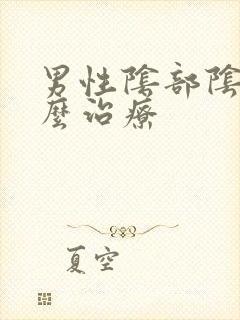 男性陰部陰
麼治療
夏空